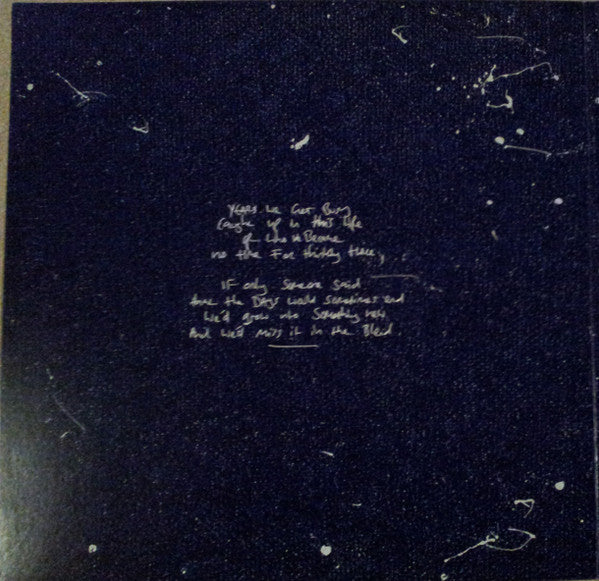 Years we Get Busy
Caught up in this life
of who we Become
no time For thinking

IF only Someone said
the Days would sometimes end
We'd grow into Something new
And we'd miss it in the Bleed.